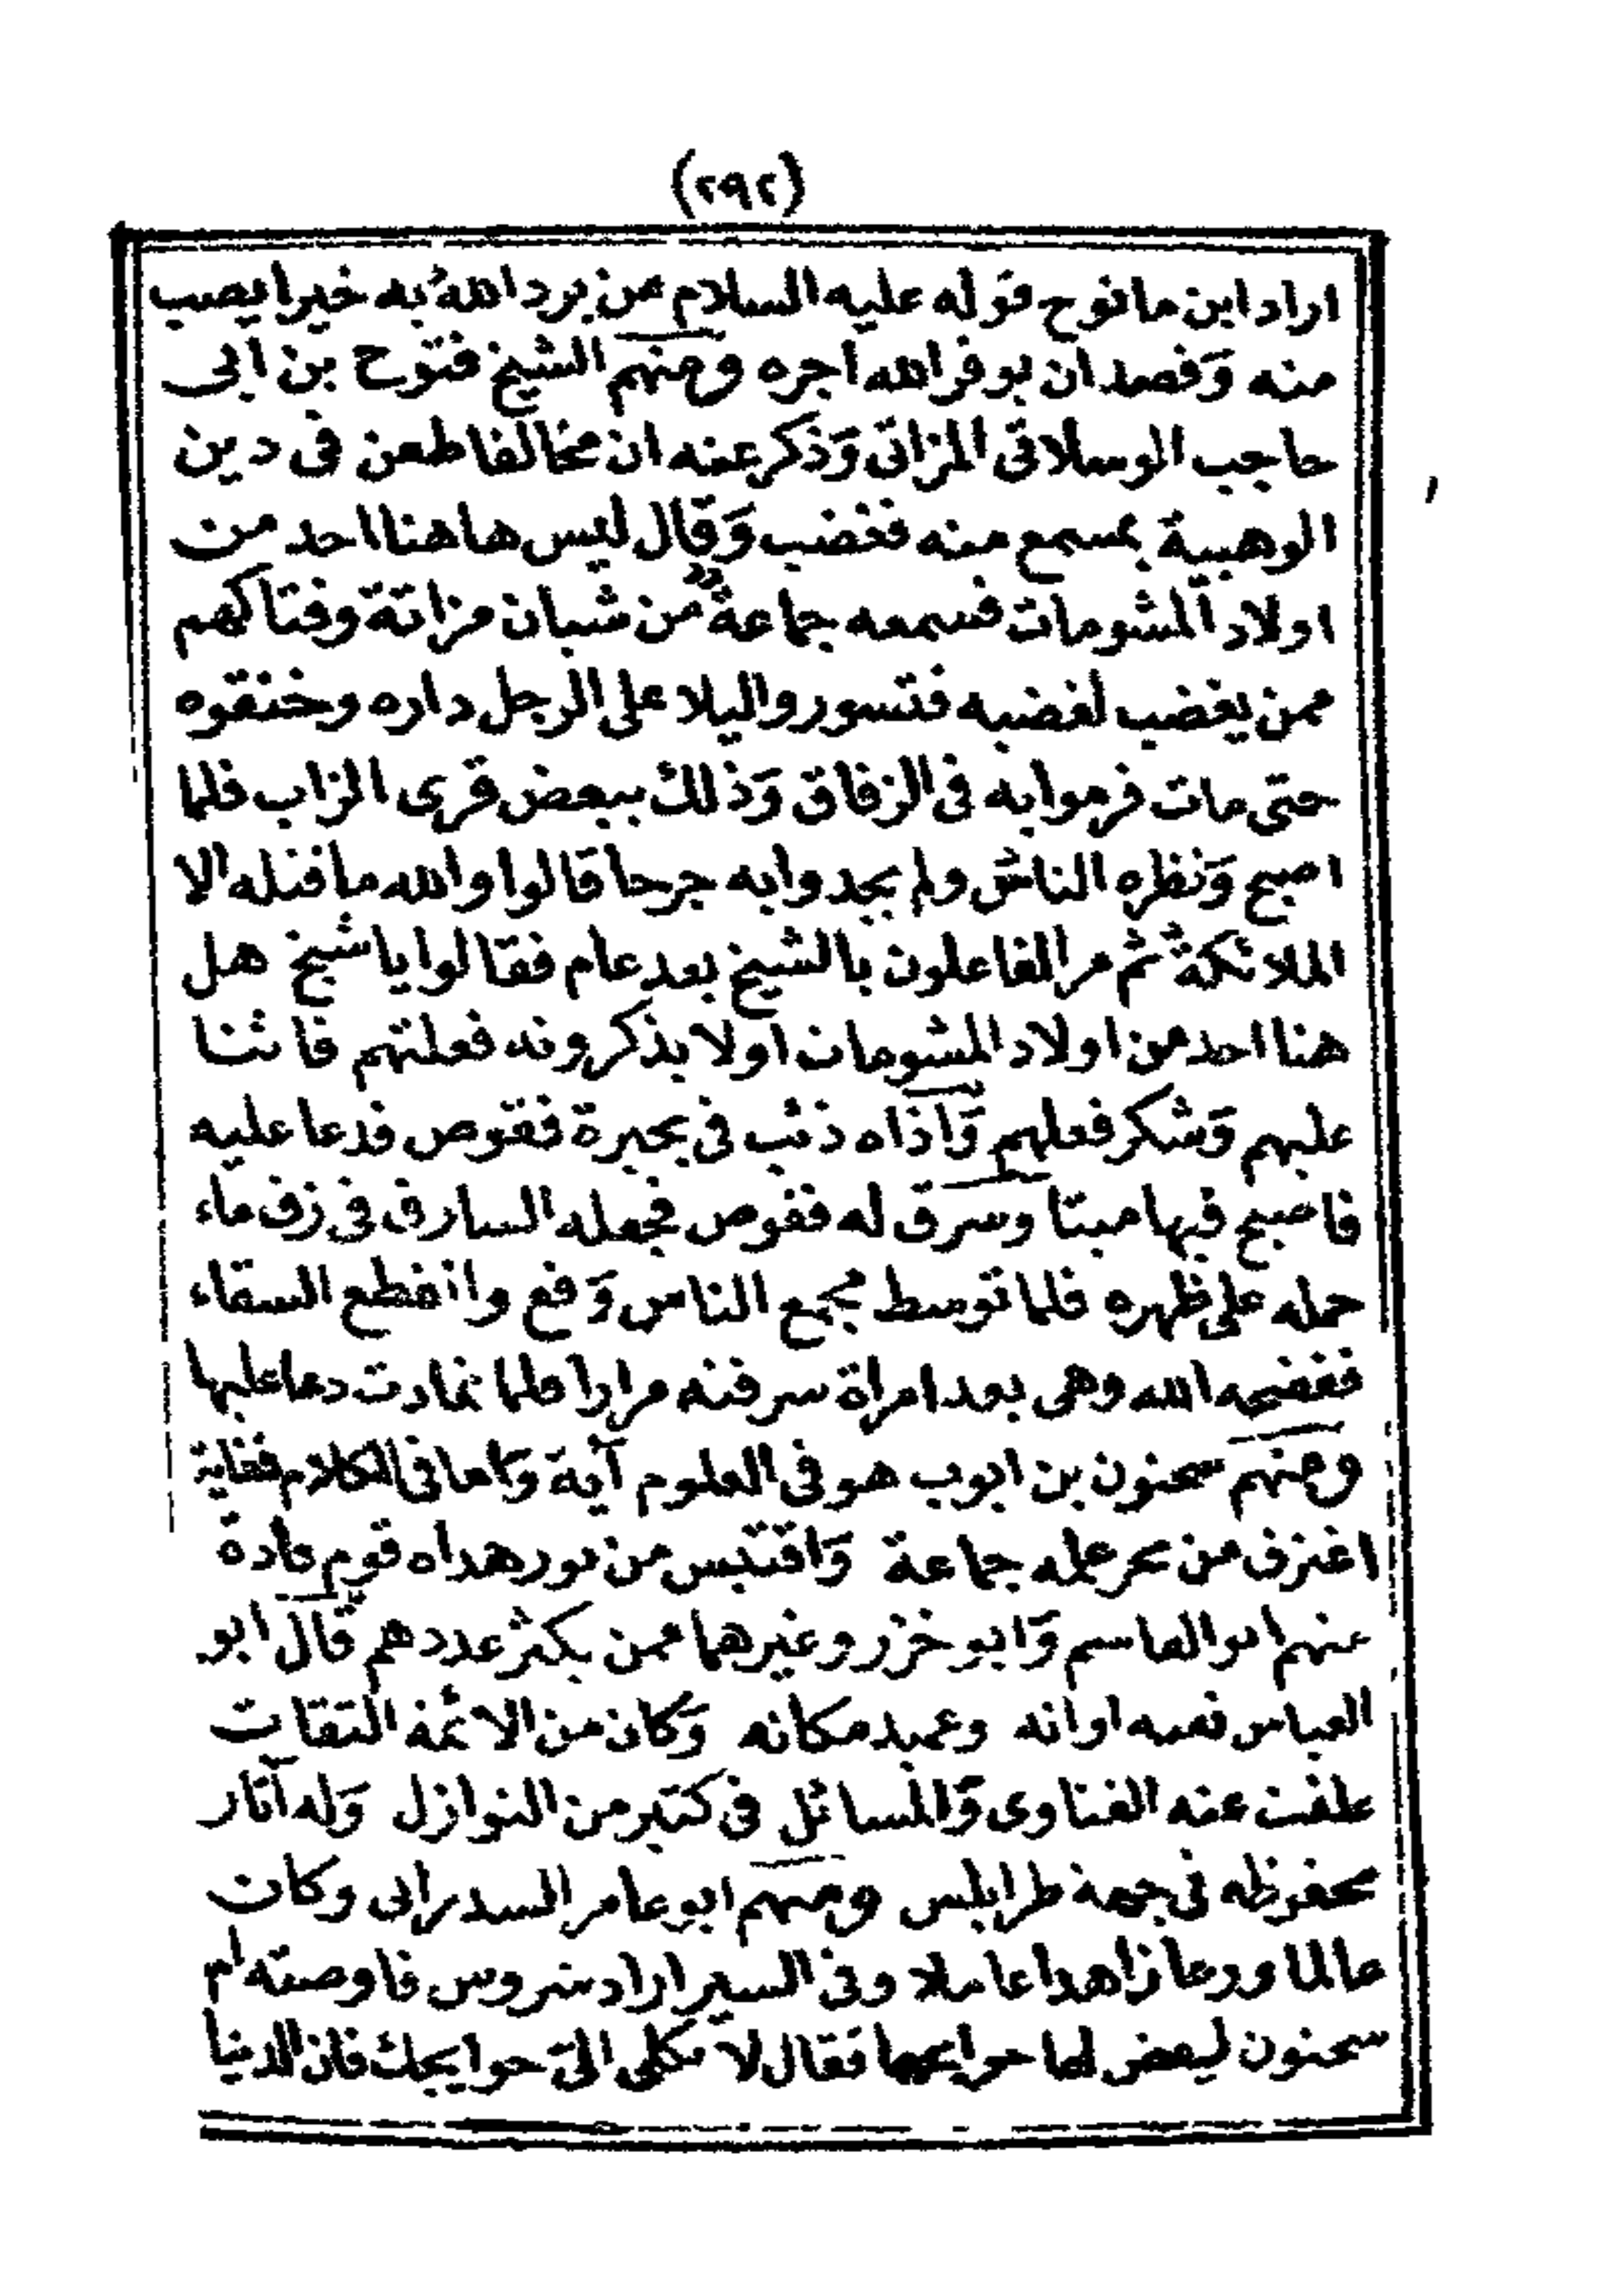 (٢٩٢)
اراد ابن مانوح قوله عليه السلام من يرد الله به خيرا يصب
منه وَقصد ان يوفر الله اجره ومنهم الشيخ فتوح بن ابى
حاجب الوسلاتى المزاتى وَذكر عنه ان مخالفا طعن فى دين
الوهبية بمسمع منه فغضب وَقال ليس هاهنا احد من
اولاد المشومات فسمعه جماعة من شبان مزاتة وفتاكهم
ممن يغضب لغضبه فتسوروا ليلا على الرجل داره وخنقوه
حتى مات فرموا به فى الزقاق وَذلك ببعض قرى الزاب فلما
اصبح وَنظره الناس ولم يجدوا به جرحا قالوا والله ما قتله الا
الملائكة ثم مر الفاعلون بالشيخ بعد عام فقالوا يا شيخ هل
هنا احد من اولاد المشومات اولا يذكرونه فعلتهم فاثنا
عليهم وَشكر فعلهم وَاذاه ذئب فى بحيرة فقوص فدعا عليه
فاصبح فيها ميتا وسرق له فقوص فجعله السارق فى زق ماء
حمله على ظهره فلما توسط مجمع الناس وَقع وانقطع السقاء
ففضحه الله وهى بعد امراة سرقته مرارا فلما تمادت دعا عليها
ومنهم سحنون بن ايوب هو فى العلوم آية وَاما فى الكلام فغاية
اغترف من بحر علمه جماعة وَاقتبس من نور هداه قوم قادة
عنهم ابو القاسم وَابو خزر وغيرهما ممن يكثر عددهم قال ابو
العباس فقيه اوانه وعميد مكانه وَكان من الائمة الثقات
علقت عنه الفتاوى وَالمسائل فى كثير من النوازل وَله آثار
محفوظه فى جهة طرابلس ومنهم ابو عامر السدراتى وكان
عالما ورعا زاهدا عاملا وفى السير اراد شروس فاوصته ام
سحنون لبعض لها حوايجها فقال لا تكلى الىّ حوايجك فان الدنيا